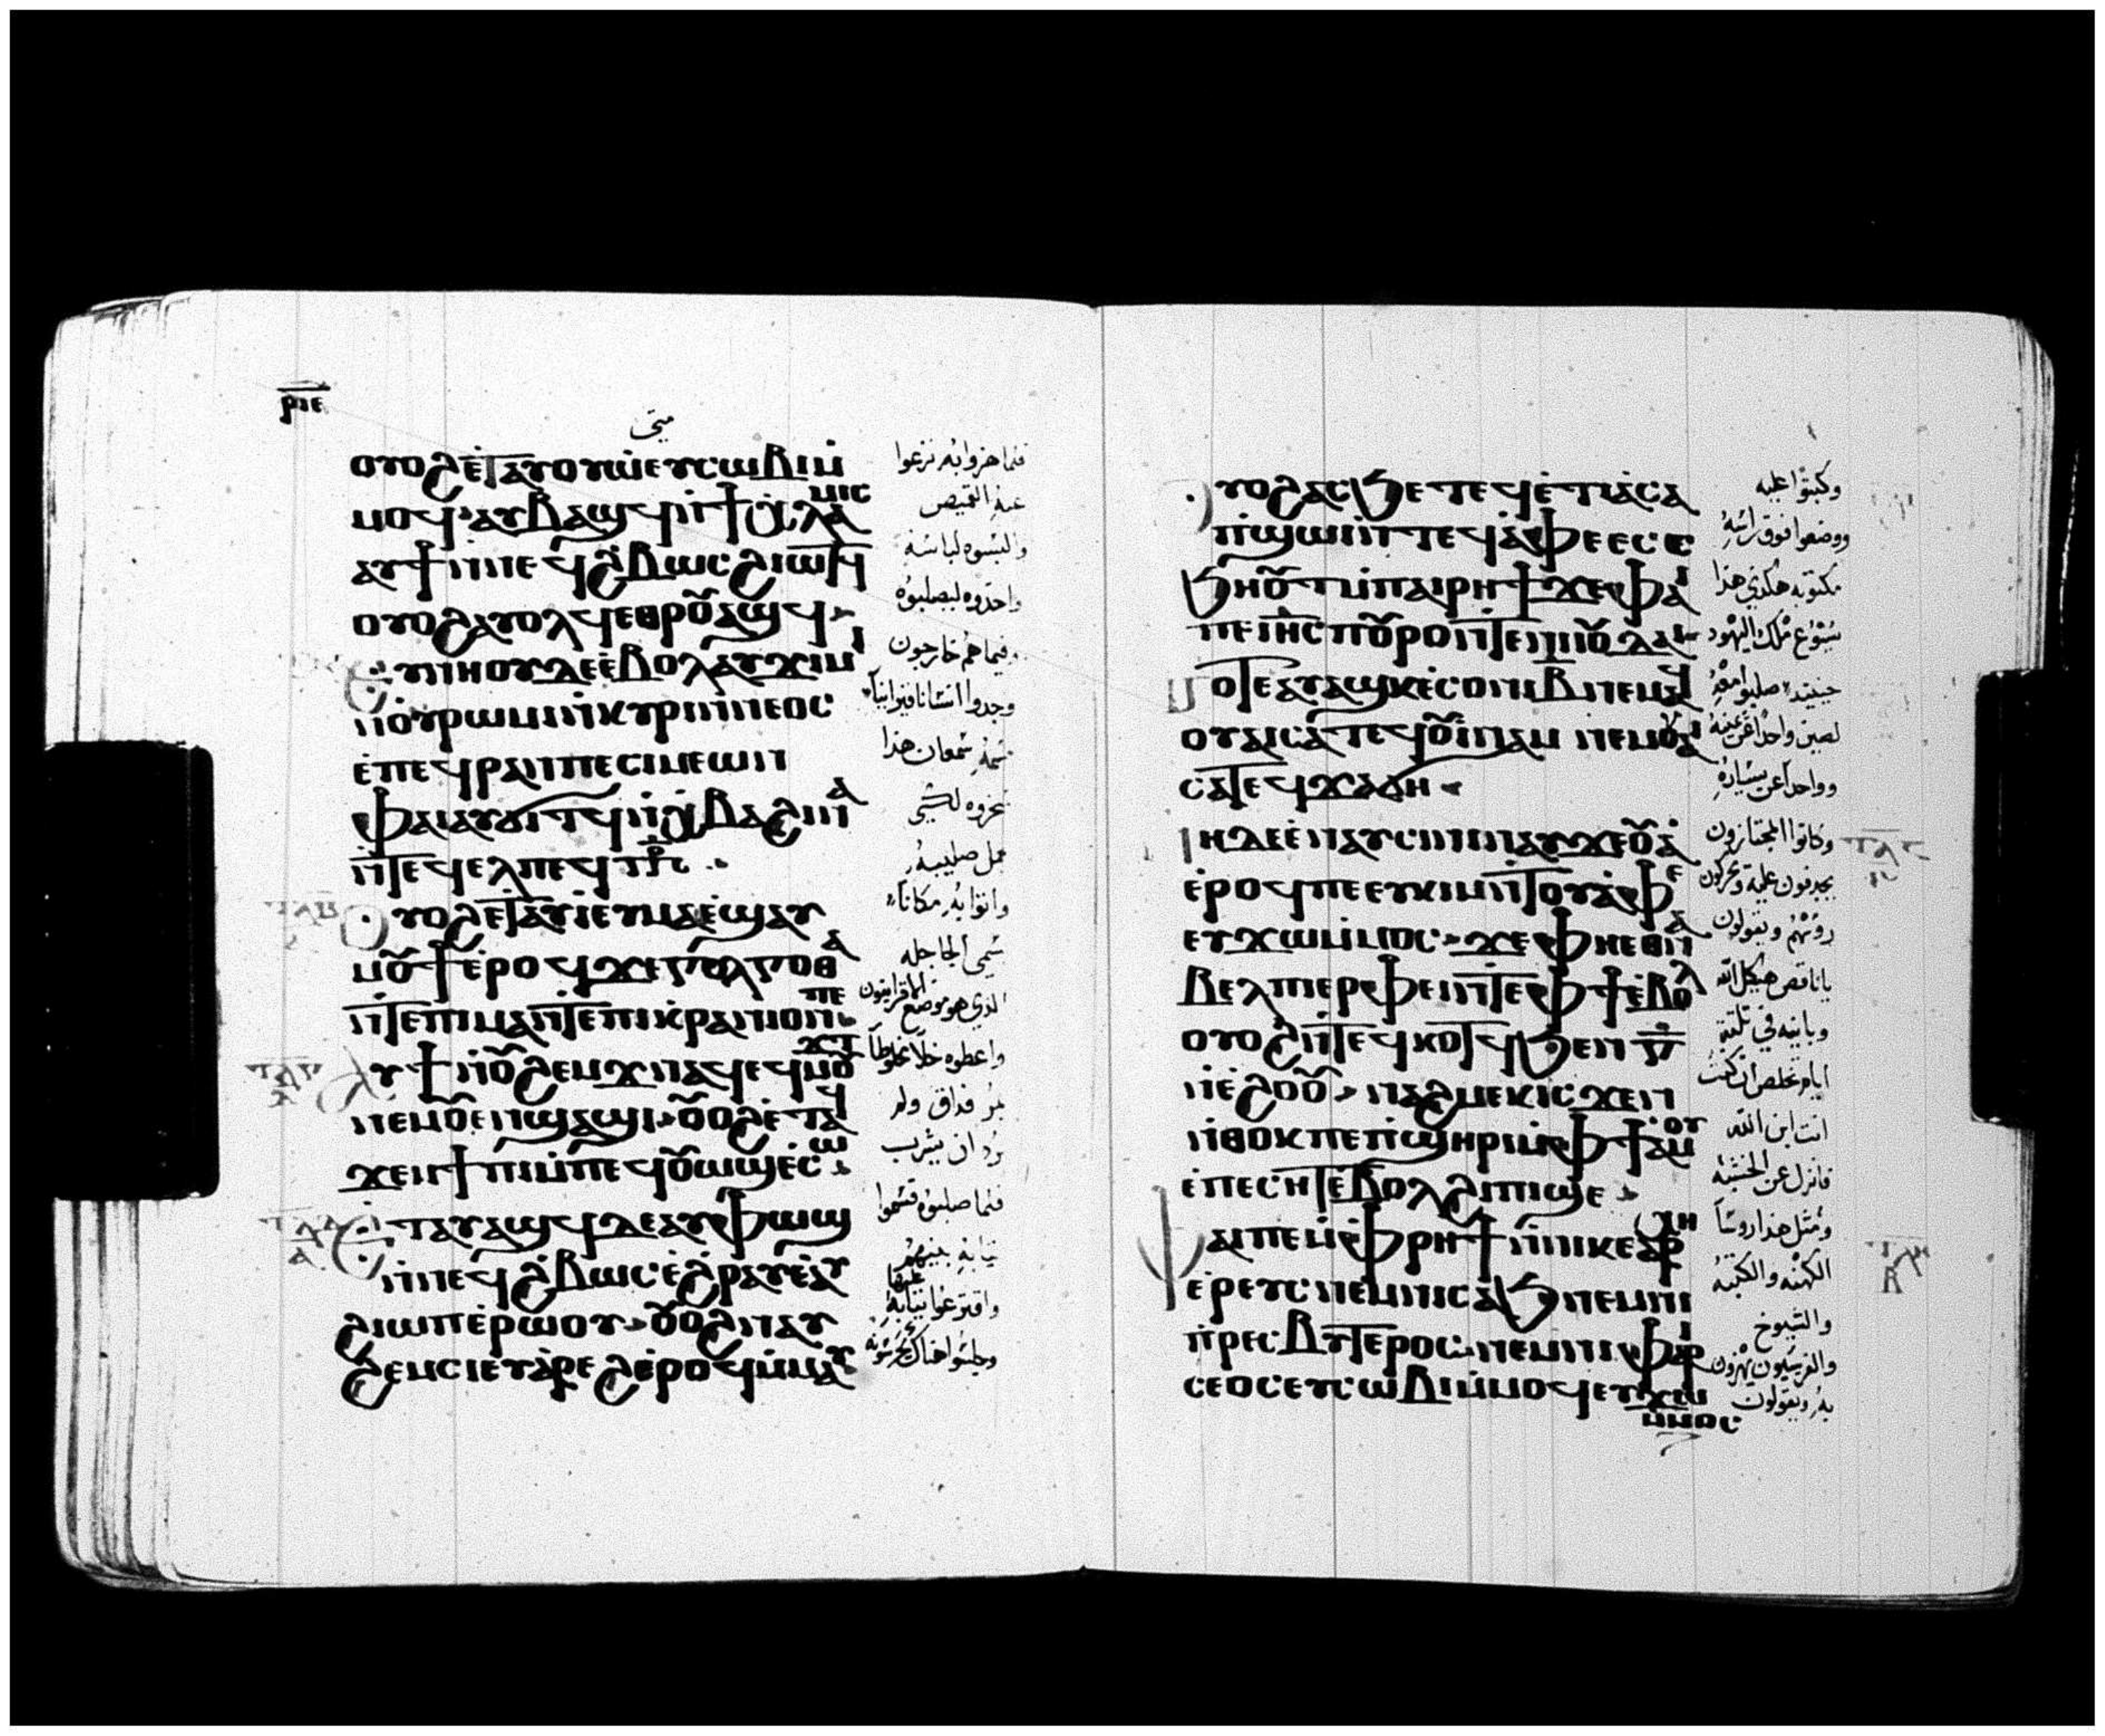 ⲣⲓⲉ
متى
ⲟⲩⲟϩ ⲉⲧⲁⲩⲟⲩⲱ ⲉⲩⲥⲱⲃⲓ ⲙ̇
ⲙⲟϥ ⲁⲩⲃⲁϣϥ ⲛ̇ϯⲭⲗⲁⲙⲓⲥ
ⲁⲩϯ ⲛⲛⲉϥϩⲃⲱⲥ ϩⲓⲱⲧϥ
ⲟⲩⲟϩ ⲁⲩⲟⲗϥ ⲉⲑⲣⲟⲩⲁϣϥ
ⲉⲩⲛⲏⲟⲩ ⲇⲉ ⲉ̇ⲃⲟⲗ ⲁⲩϫⲓⲙⲓ
ⲛ̇ⲟⲩⲣⲱⲙⲓ ⲛ̇ⲕⲩⲣⲓⲛⲛⲉⲟⲥ
ⲉ̇ⲡⲉϥⲣⲁⲛ ⲡⲉ ⲥⲓⲙⲉⲱⲛ
ⲫⲁⲓ ⲁⲩϭⲓⲧϥ ⲛ̇ⲭⲃⲁ ϩⲓⲛⲁ
ⲛ̇ⲧⲉϥⲉⲗ ⲡⲉϥ
ⲟⲩⲟϩ ⲉ̇ⲧⲁⲩⲓ̇ ⲉⲩⲙⲁ ⲉ̇ϣⲁⲩ
ⲙⲟⲩϯ ⲉ̇ⲣⲟϥ ϫⲉ ⲅⲟⲗⲅⲟⲑⲁ
ⲛ̇ⲧⲉ ⲡⲓⲙⲁ ⲛ̇ⲧⲉ ⲡⲓⲕⲣⲁⲛⲓⲟⲛ ⲡⲉ
ⲁⲩϯ ⲛ̇ⲟⲩϩⲉⲙϫ ⲛⲁϥ ⲉϥⲙⲟⲩϫⲧ
ⲛⲉⲙ ⲟⲩⲉⲛϣⲁϣⲓ ⲟⲩⲟϩ ⲉ̇ⲧⲁϥ
ϫⲉⲙϯⲡⲓ ⲙ̇ⲡⲉϥⲟⲩⲱϣ ⲉ̇ⲥⲱ
ⲉⲧⲁⲩⲁϣϥ ⲇⲉ ⲁⲩⲫⲱϣ
ⲛ̇ⲛⲉϥϩⲃⲱⲥ ⲉ̇ϩⲣⲁⲩ ⲉ̇ⲁⲩ
ϩⲓⲱⲡ ⲉ̇ⲣⲱⲟⲩ ⲟⲩⲟϩ ⲛⲁⲩ
ϩⲉⲙⲥⲓ ⲉⲩⲁ̇ⲣⲉϩ ⲉ̇ⲣⲟϥ ⲙ̇ⲙⲁⲩ
فلما هزوا به نزعوا
عنه القميص
والبسوه لباسه
واخدوه ليصلبوه
وفيما هم خارجون
وجدوا انسانا قيروانيا
اسمه سمعان هذا
سخروه لكي
يحمل صليبه
واتوا به مكانا
يسمى الجاجله
الذي هو موضع القرانيون
واعطوه خلا مخلوطا
بمر فداق ولم
يرد ان يشرب
فلما صلبوه قسموا
ثيابه بينهم
واقترعوا عليها
وجلسوا هناك يحرسونه
ⲟⲩⲟϩ ⲁⲥϧⲉ ⲧⲉϥⲉ̇ⲧⲓⲁ̇ ⲥⲁ
ⲡ̇ϣⲱⲓ ⲛ̇ⲧⲉϥⲁ̇ⲫⲉ ⲉⲥⲥ
ϧⲏⲟⲩⲧ ⲙ̇ⲡⲁⲓⲣⲏϯ ϫⲉ ⲫⲁⲓ
ⲡⲉ ⲓⲏⲥ ⲡⲟⲩⲣⲟ ⲛ̇ⲧⲉ ⲛⲓⲓⲟⲩⲇⲁⲓ
ⲧⲟⲧⲉ ⲁⲩⲁϣ ⲕⲉⲥⲟⲛⲓ ⲃ̄ ⲛⲉⲙⲁϥ
ⲟⲩⲁⲓ ⲥⲁ ⲧⲉϥⲟⲩⲓⲛⲁⲙ ⲛⲉⲙ ⲟⲩⲁⲓ
ⲥⲁ ⲧⲉϥϫⲁϭⲏ
ⲛⲏ ⲇⲉ ⲉ̇ⲛⲁⲩⲥⲓⲛⲓ ⲛⲁⲩϫⲉⲟⲩⲁ̇
ⲉ̇ⲣⲟϥ ⲡⲉ ⲉⲩⲕⲓⲙ ⲛ̇ⲧⲟⲩⲁ̇ⲫⲉ
ⲉⲩϫⲱ ⲙ̇ⲙⲟⲥ ϫⲉ ⲫⲏ ⲉⲑⲛⲁ
ⲃⲉⲗ ⲡⲓⲉⲣⲫⲉⲓ ⲛ̇ⲧⲉ ⲫϯ ⲉ̇ⲃⲟⲗ
ⲟⲩⲟϩ ⲛ̇ⲧⲉϥⲕⲟⲧϥ ϧⲉⲛ ⲅ̄
ⲛ̇ⲉ̇ϩⲟⲟⲩ ⲛⲁϩⲙⲉⲕ ⲓⲥϫⲉⲛ
ⲛ̇ⲑⲟⲕ ⲡⲉ ⲡ̇ϣⲏⲣⲓ ⲙ̇ⲫϯ ⲁ̇ⲙⲟⲩ
ⲉ̇ⲡⲉⲥⲏⲧ ⲉ̇ⲃⲟⲗ ϩⲓ ⲡⲓϣⲉ
ⲫⲁⲓ ⲡⲉ ⲙ̇ⲫⲣⲏϯ ⲛ̇ⲛⲓⲕⲉⲁⲣⲭⲏ
ⲉ̇ⲣⲉⲩⲥ ⲛⲉⲙ ⲛⲓⲥⲁϧ ⲛⲉⲙ ⲛⲓ
ⲡ̇ⲣⲉⲥⲃⲩⲧⲉⲣⲟⲥ ⲛⲉⲙ ⲛⲓⲫⲁⲣⲓ
ⲥⲉⲟⲥ ⲉⲩⲥⲱⲃⲓ ⲙ̇ⲙⲟϥ ⲉⲩϫⲱ
ⲙ̇ⲙⲟⲥ
وكتبوا عليه
ووضعوا فوق راسه
مكتوبه هكذي هذا
يسوع ملك اليهود
حينيد صلبوا معه
لصين واحدا عن يمينه
وواحدا عن يساره
وكانوا المجتازون
يجدفون عليه ويحركون
روسهم ويقولون
يا ناقض هيكل الله
وبانيه في تلتة
ايام تخلص ان كنت
انت ابن الله
فانزل عن الخشبه
ومثل هذا روسا
الكهنه والكتبه
والشيوخ
والفريسيون يهزون
به ويقولون